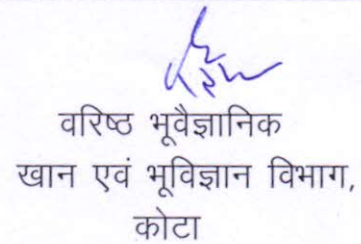 वरिष्ठ भूवैज्ञानिक
खान एवं भूविज्ञान विभाग,
कोटा